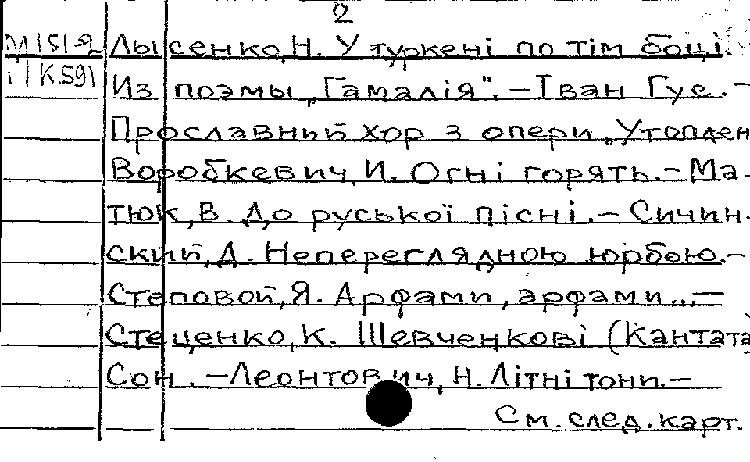 2
М 151-2 Лысенко, Н. У туркені по тім боці.
1 | К.591 Из поэмы „Гамалія". – Іван Гус. –
Прославний хор з опери „Утоплен
Воробкевич, И. Огні горять. – Ма-
тюк, В. До руської пісні. – Сичин-
ский, Д. Непереглядною юрбою. –
Степовой, Я. Арфами, арфами... –
Стеценко, К. Шевченкові (Кантата)
Сон. – Леонтович, Н. Літні тони. –
См. след. карт.